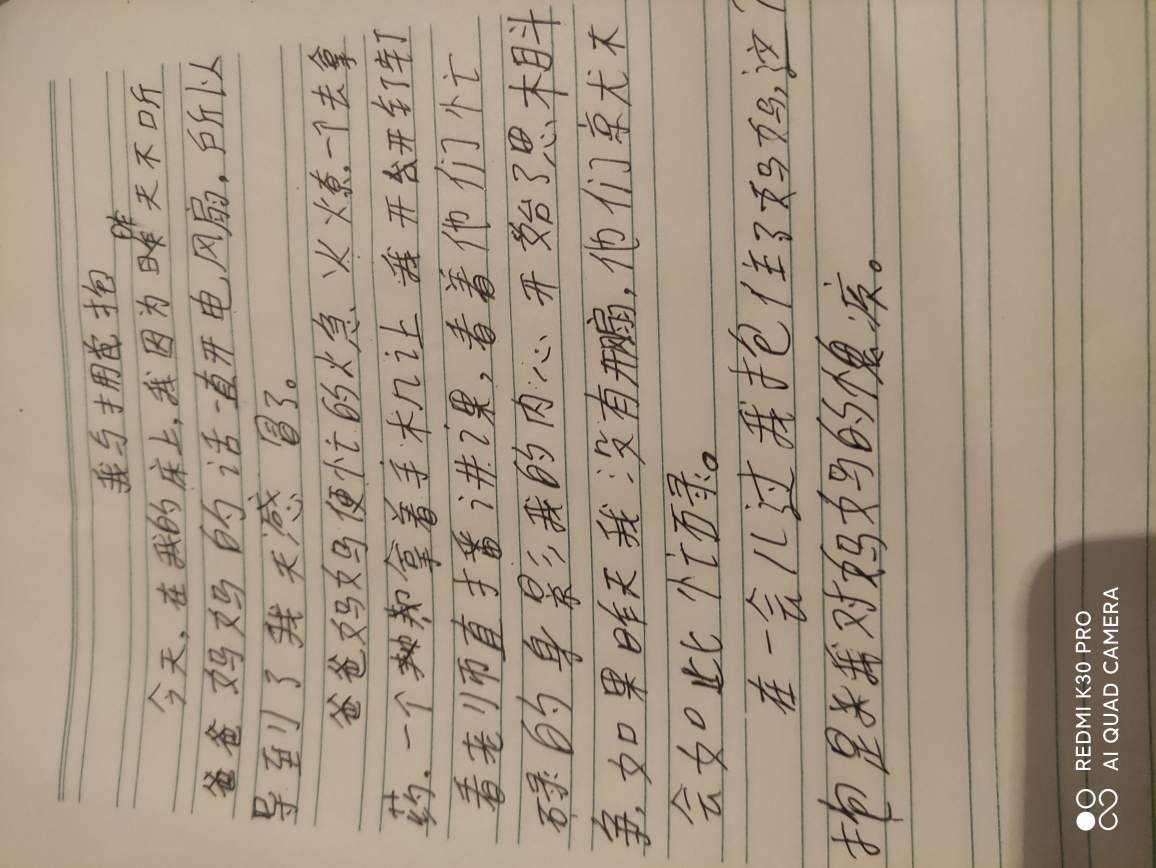 我与拥抱
今天,在我的床上,我因为昨天不听
爸爸妈妈的话一直开电风扇,所以
导到了我天感冒了。
爸爸妈妈便忙的火急火燎一个去拿
药.一个拿着手机让我开始
看老师直播讲课,看着他们忙
碌的身影,我的内心开始了思想斗
争,如果昨天我没有开扇,他们就不
会如此忙碌。
在一会儿过我抱住了妈妈,这
抱是我对妈妈的愧疚。
REDMI K30 PRO
AI QUAD CAMERA